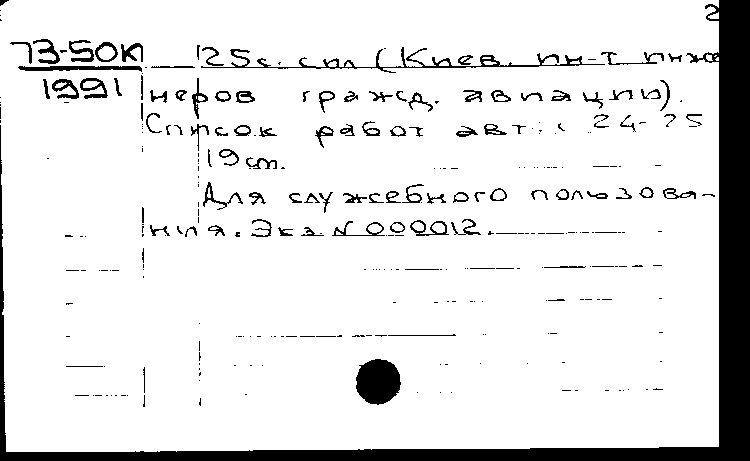 2
73-50К 25с. сил (Киев. ин-т инже
1991 неров гражд. авиации).
Список работ авт.: с 24-25
19 ст.
Для служебного пользова-
ния. Экз N 000012.